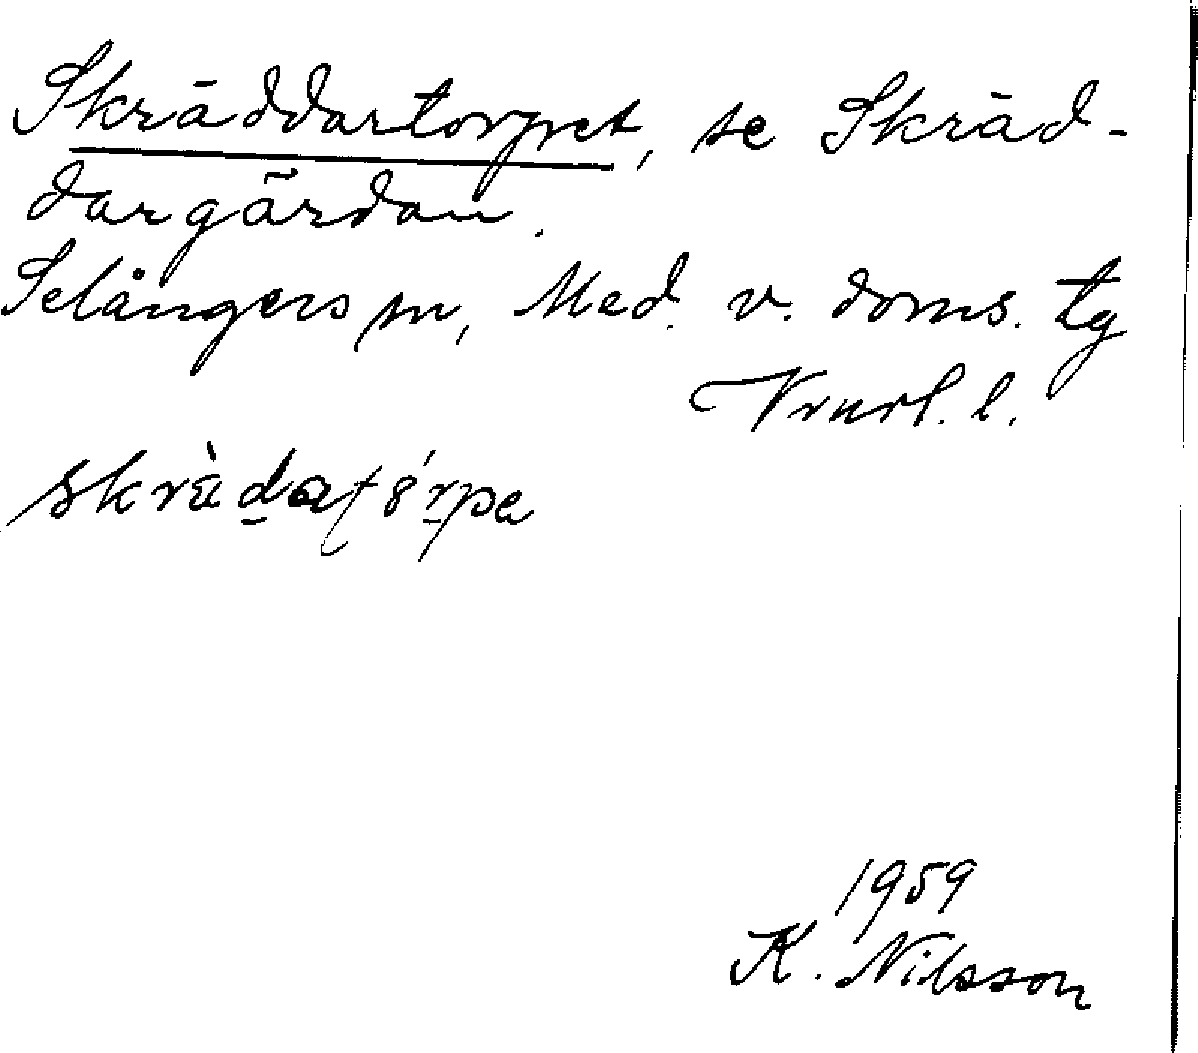 Skräddartorpet, se Skräd-
dargärdan.
Selångers sn, Med. v. doms. tg
Vnurl. l.
skrä̀datǫ́rpe
1959
K. Nilsson